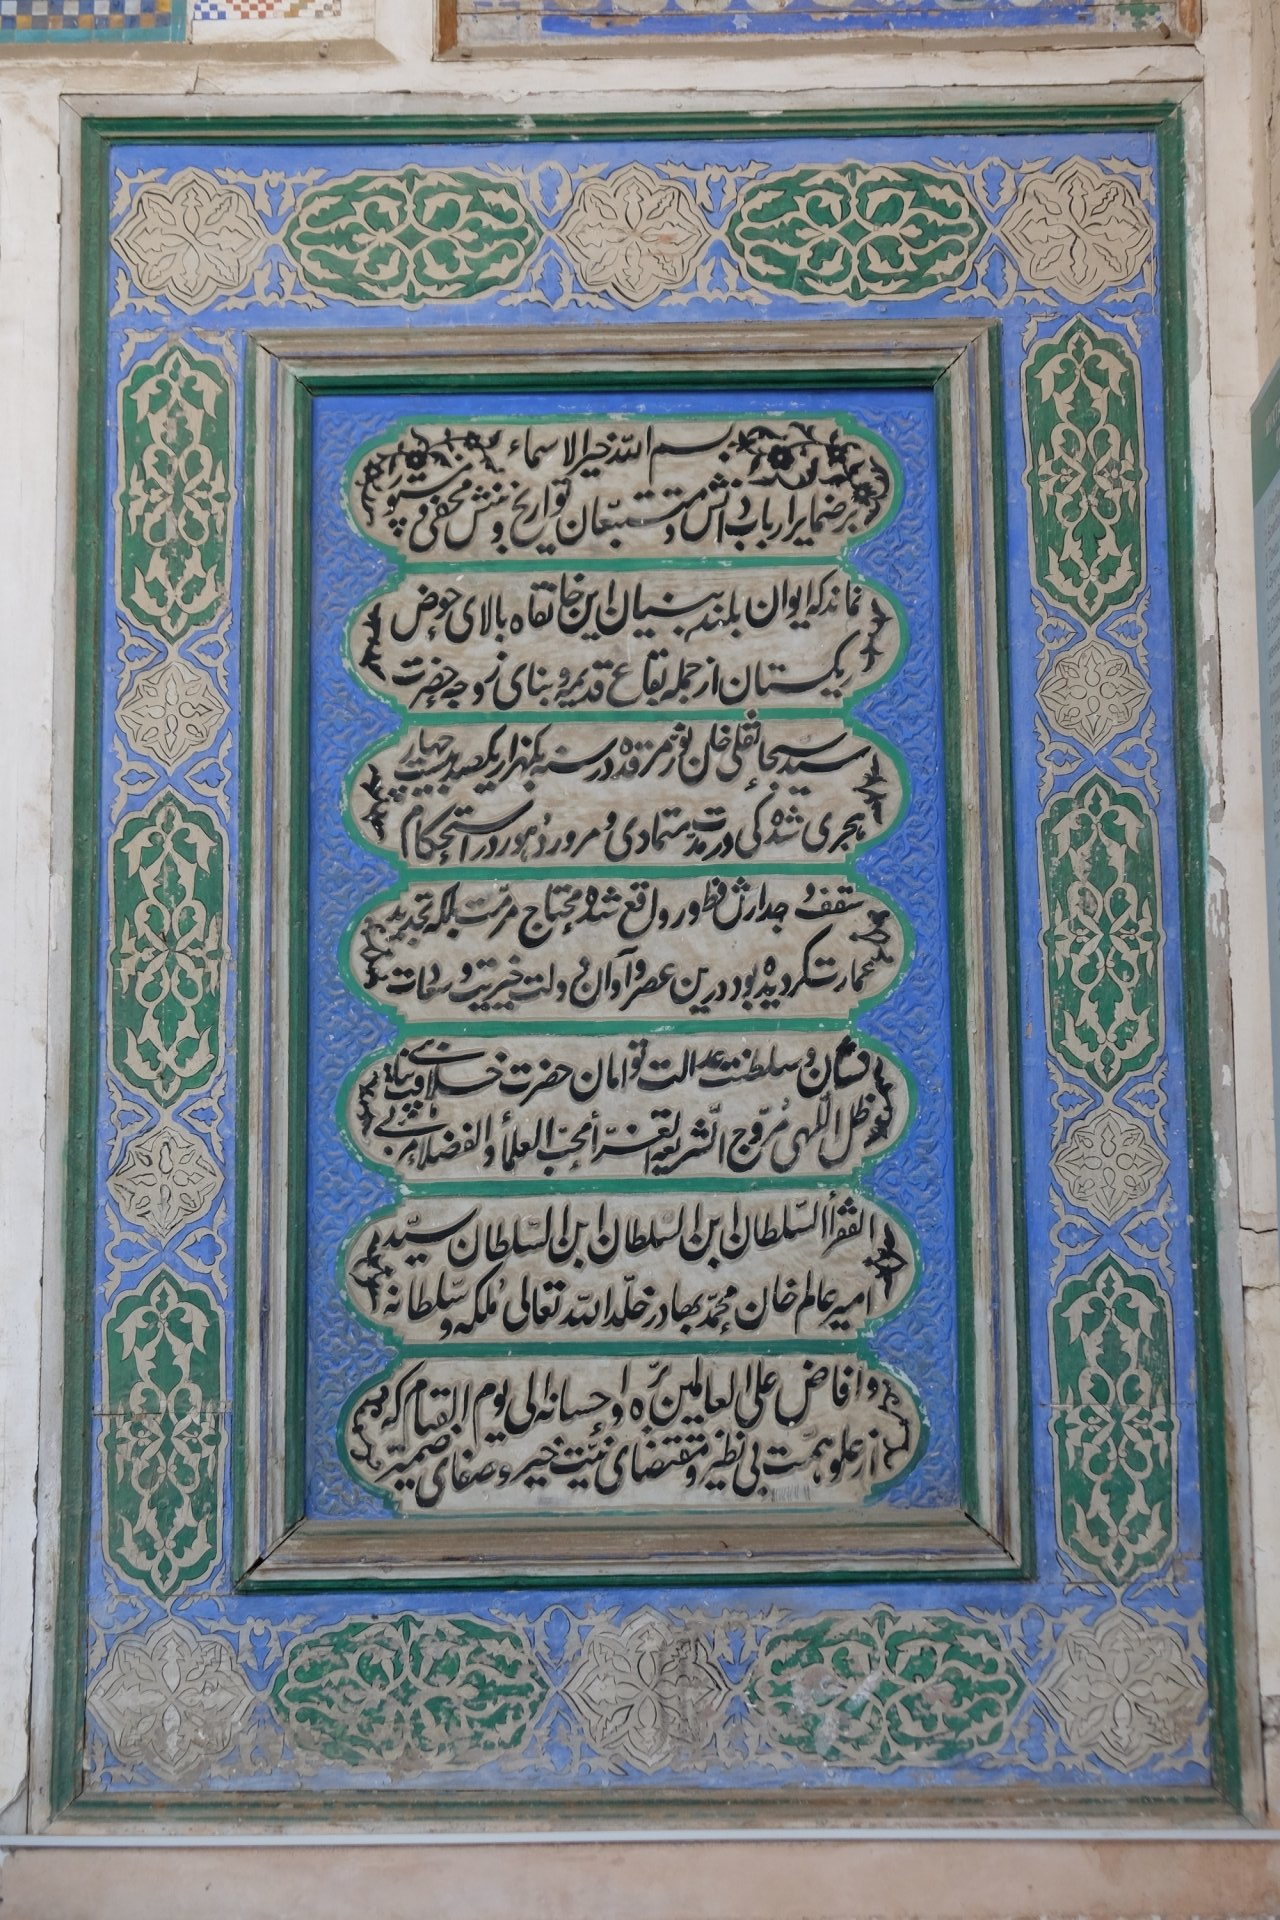 بسم الله خیر الاسماء
بر ضمایر ارباب دانش و متتبّعان تواریخ و بینش مخفی و مستور
نماند که ایوان بلند بنیان این خانقاه بالای حوض
ریکستان از جمله بقاع قدیمه و بنای زوجه حضرت
سید سبحانقلی خان نور مرقده در سنه یکهزار یکصد بیست چهار
هجری شده کی در مدت متمادی و مرور دهور در استحکام
سقف و جدارش فطور واقع شده محتاج مرمّت بلکه تجدید
عمارت کردیده بود درین عصر و آوان دولت خیریت و سعادت
نشان و سلطنت عدالت توامان حضرت خلافت پناهی
ظل اللهی مُروّج الشریعه الغرّأ محبّ العلمأ والفضلا مربی
الفقرأ السّلطان ابن السّلطان ابن السّلطان سیّد
امیر عالم خان محمّد بهادر خلّد الله تعالی مُلکه و سلطانه
و افاض علی العالمین برّه و احسانه الی یوم القیام که
از علو همّت بی نظیر و مقتضای نیّت خیر و صفای ضمیر